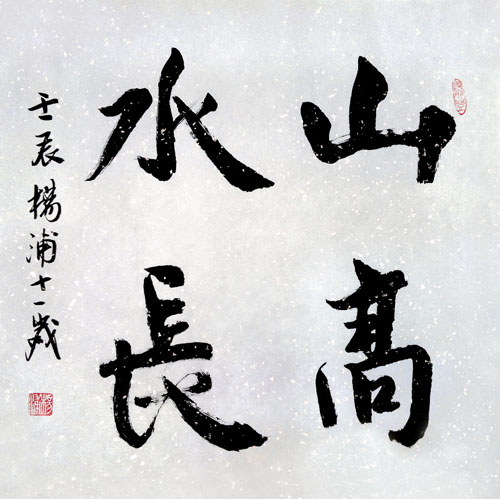 山高
水長
壬辰楊浦十一歲